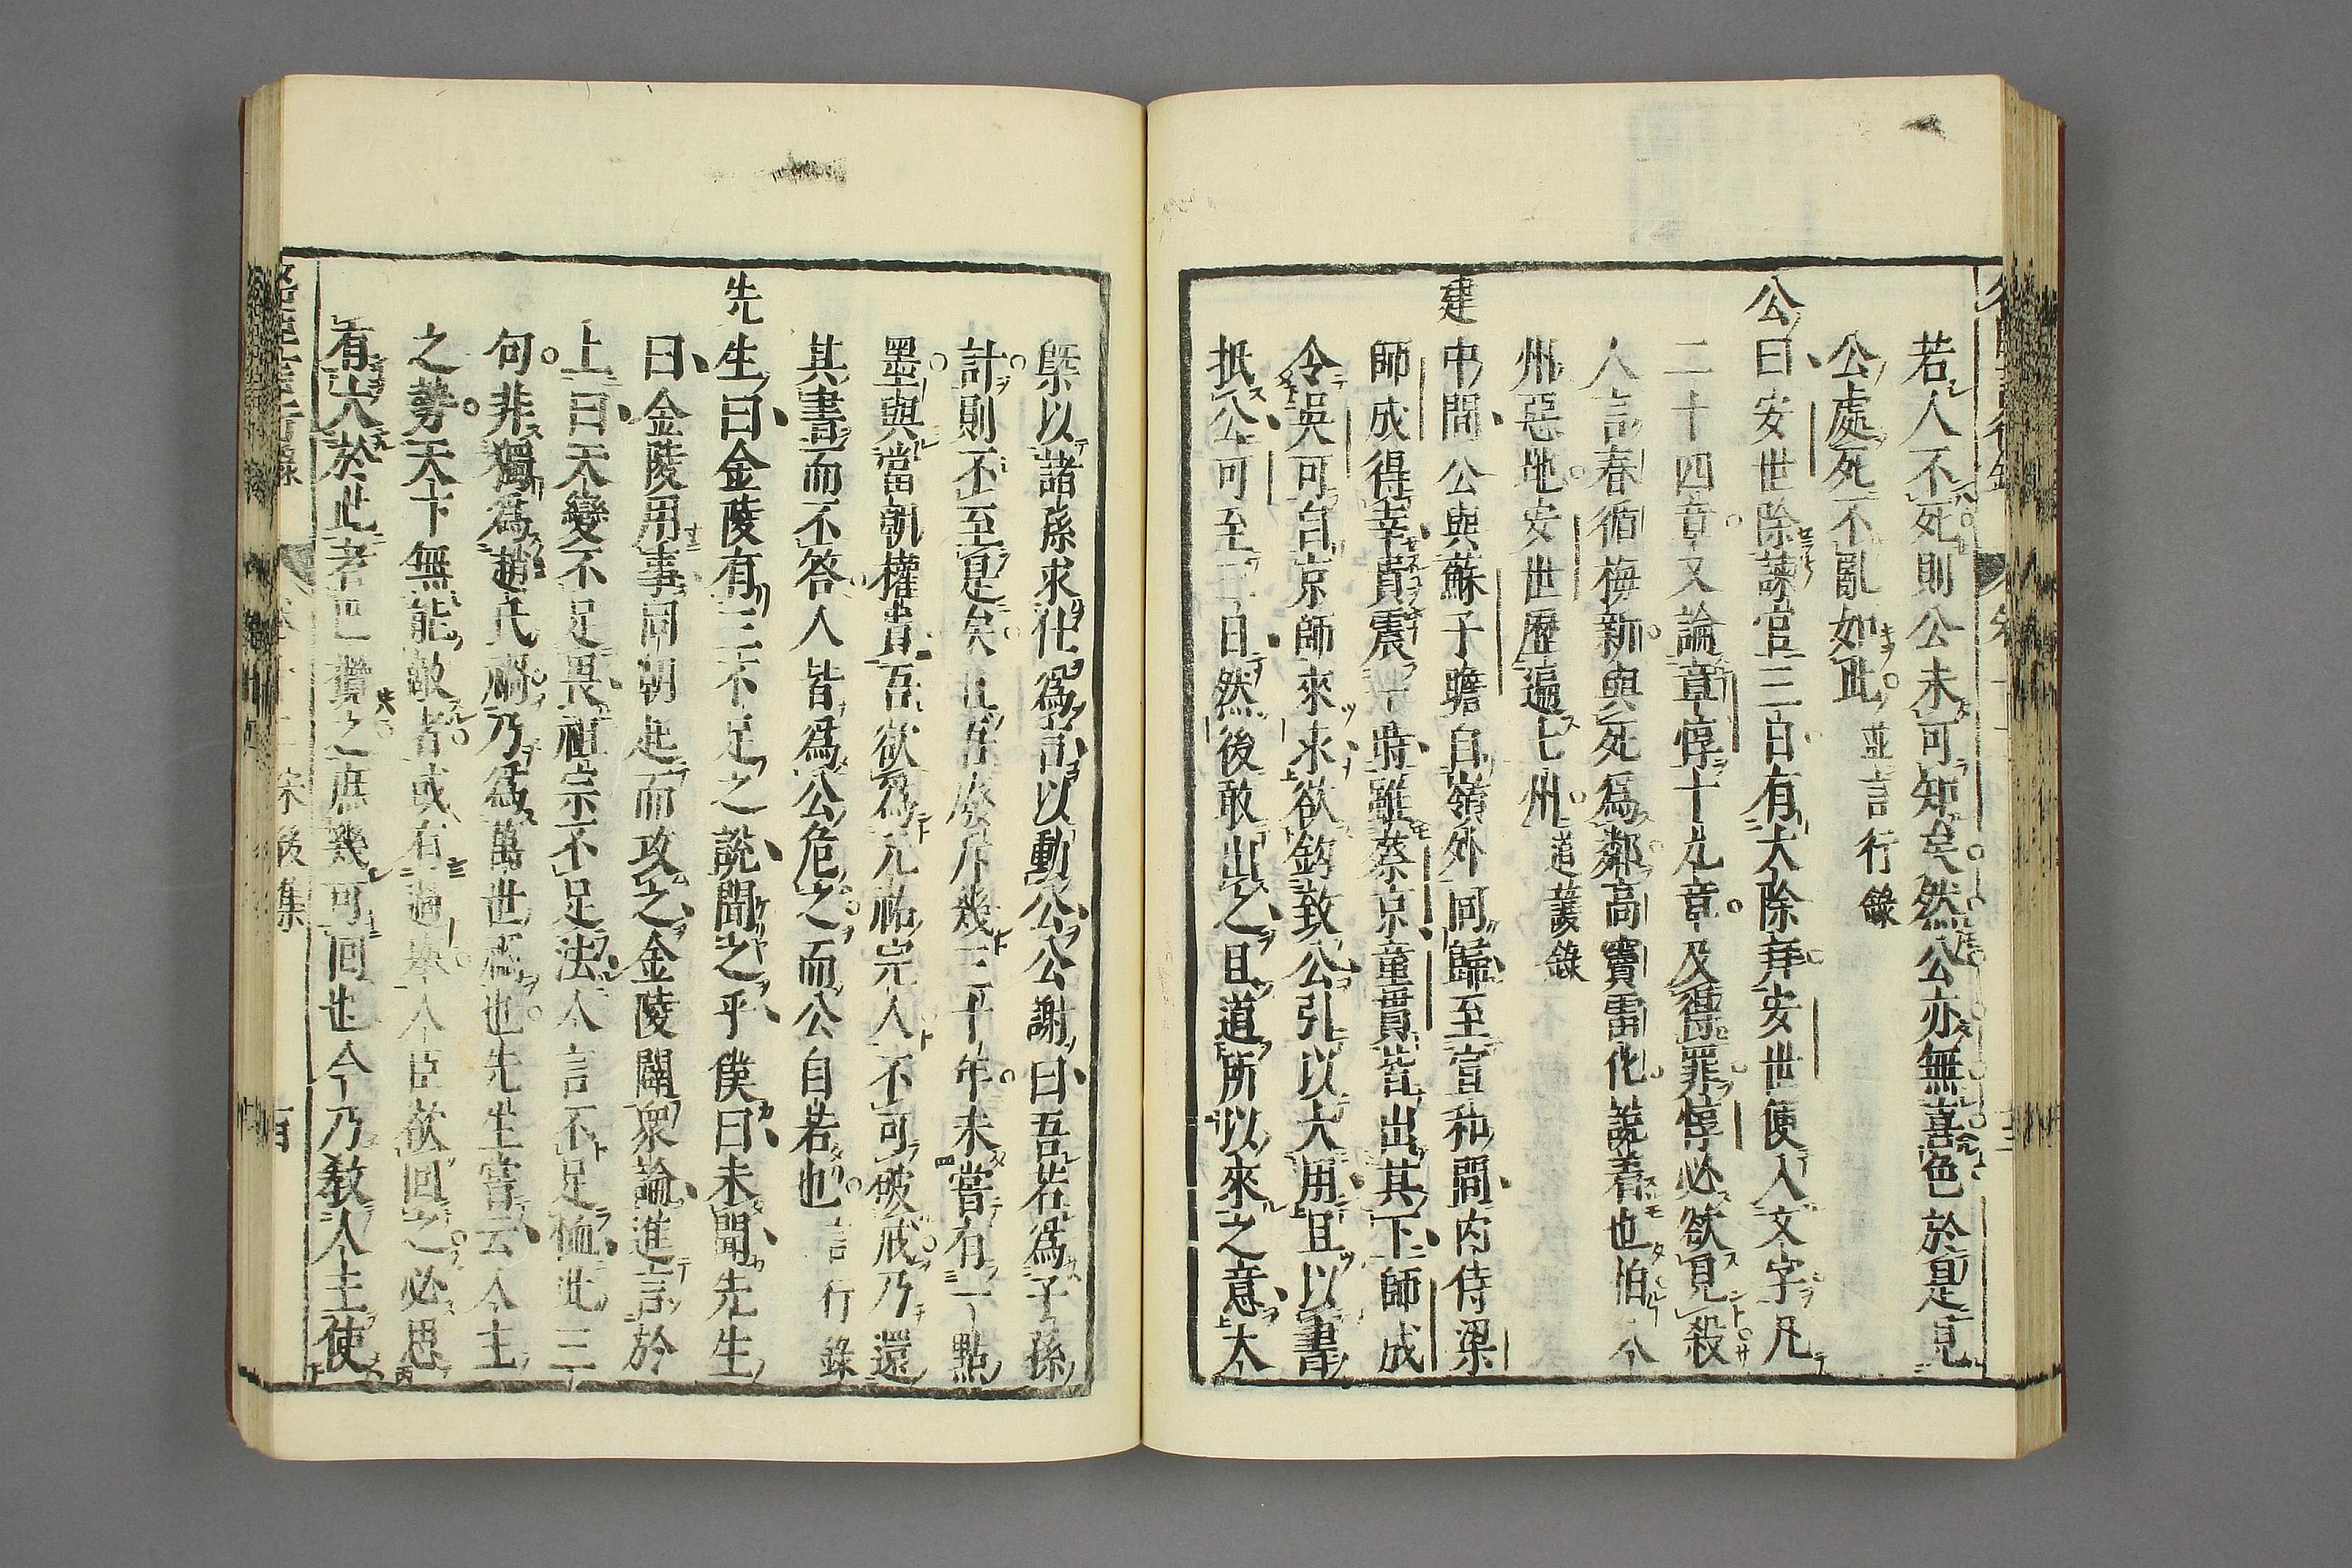 若人不死則公未可知矣然公亦無喜色於是見
公處死不亂如此並言行錄
公曰安世除諫官三日有大除拜安世便入文字凡
二十四章又論章惇十九章及得罪惇必欲見殺
人言春循梅新與死爲鄰高竇雷化說着也怕今
州惡地安世歷遍七州道護錄
建中間公與蘇子瞻自嶺外同歸至宣和間內侍梁
師成得幸貴震一時雖蔡京童貫皆出其下師成
令吳可自京師來宋欲鈎致公引以大用且以書
抵公可至三日然後敢出之且道所以來之意大
槩以諸孫求仕爲言以動公公謝曰吾若爲子孫
計則不至是矣且吾廢斥幾三十年未嘗有一點
墨與當朝權貴吾欲爲元祐完人不可破戒乃還
其書而不答人皆爲公危之而公自若也言行錄
先生曰金陵有三不足之說聞之乎僕曰未聞先生
曰金陵用事同朝起而攻之金陵闢衆論進言於
上曰天變不足畏祖宗不足法人言不足恤此三
句非獨爲趙氏禍乃爲萬世禍也先生嘗云人主
之勢天下無能敵者或有過擧人臣欲回之必思
有大於此者巴攬之庶幾可回也今乃教人主使
宋後集